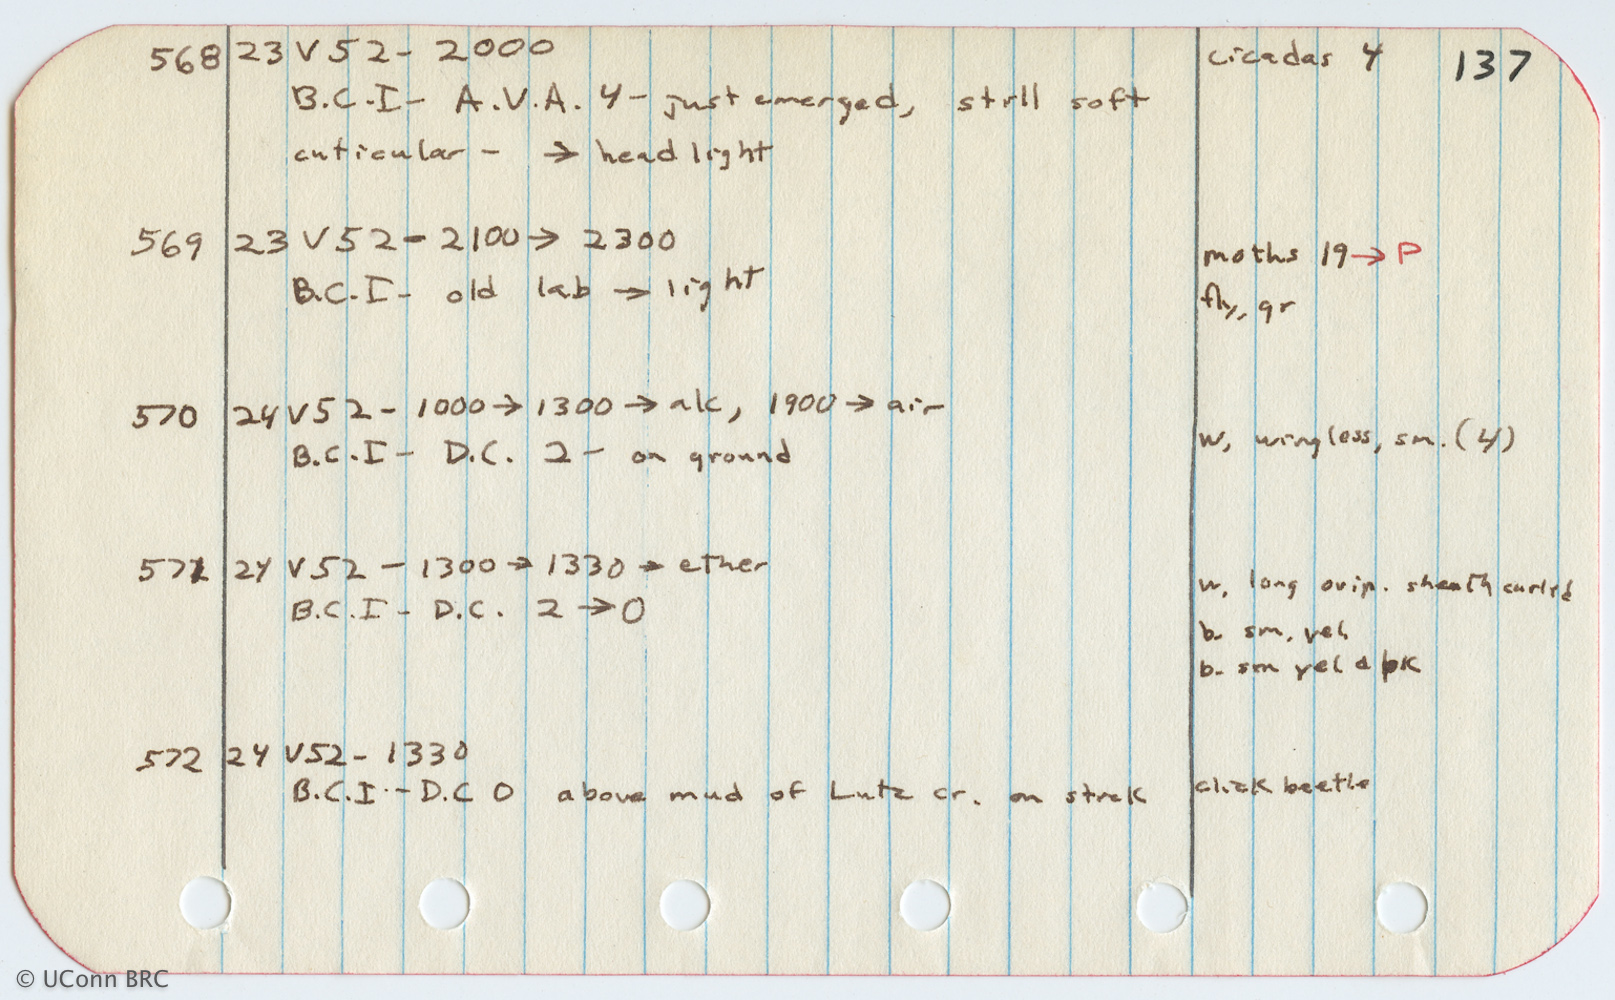 137
568 23 V 52 - 2000 cicadas 4
B.C.I - A.V.A. 4 - just emerged, still soft
cuticular - → head light
569 23 V 52 - 2100 → 2300 moths 19 → P
B.C.I - old lab → light fly, gr
570 24 V 52 - 1000 → 1300 → alc, 1900 → air
B.C.I - D.C. 2 - on ground w, wingless, sm. (4)
571 24 V 52 - 1300 → 1330 → ether w, long ovip. sheath curled
B.C.I - D.C. 2 → 0 b. sm. yel
b. sm yel & bk
572 24 V 52 - 1330
B.C.I - D.C 0 above mud of Lutz cr. on stick click beetle
© UConn BRC